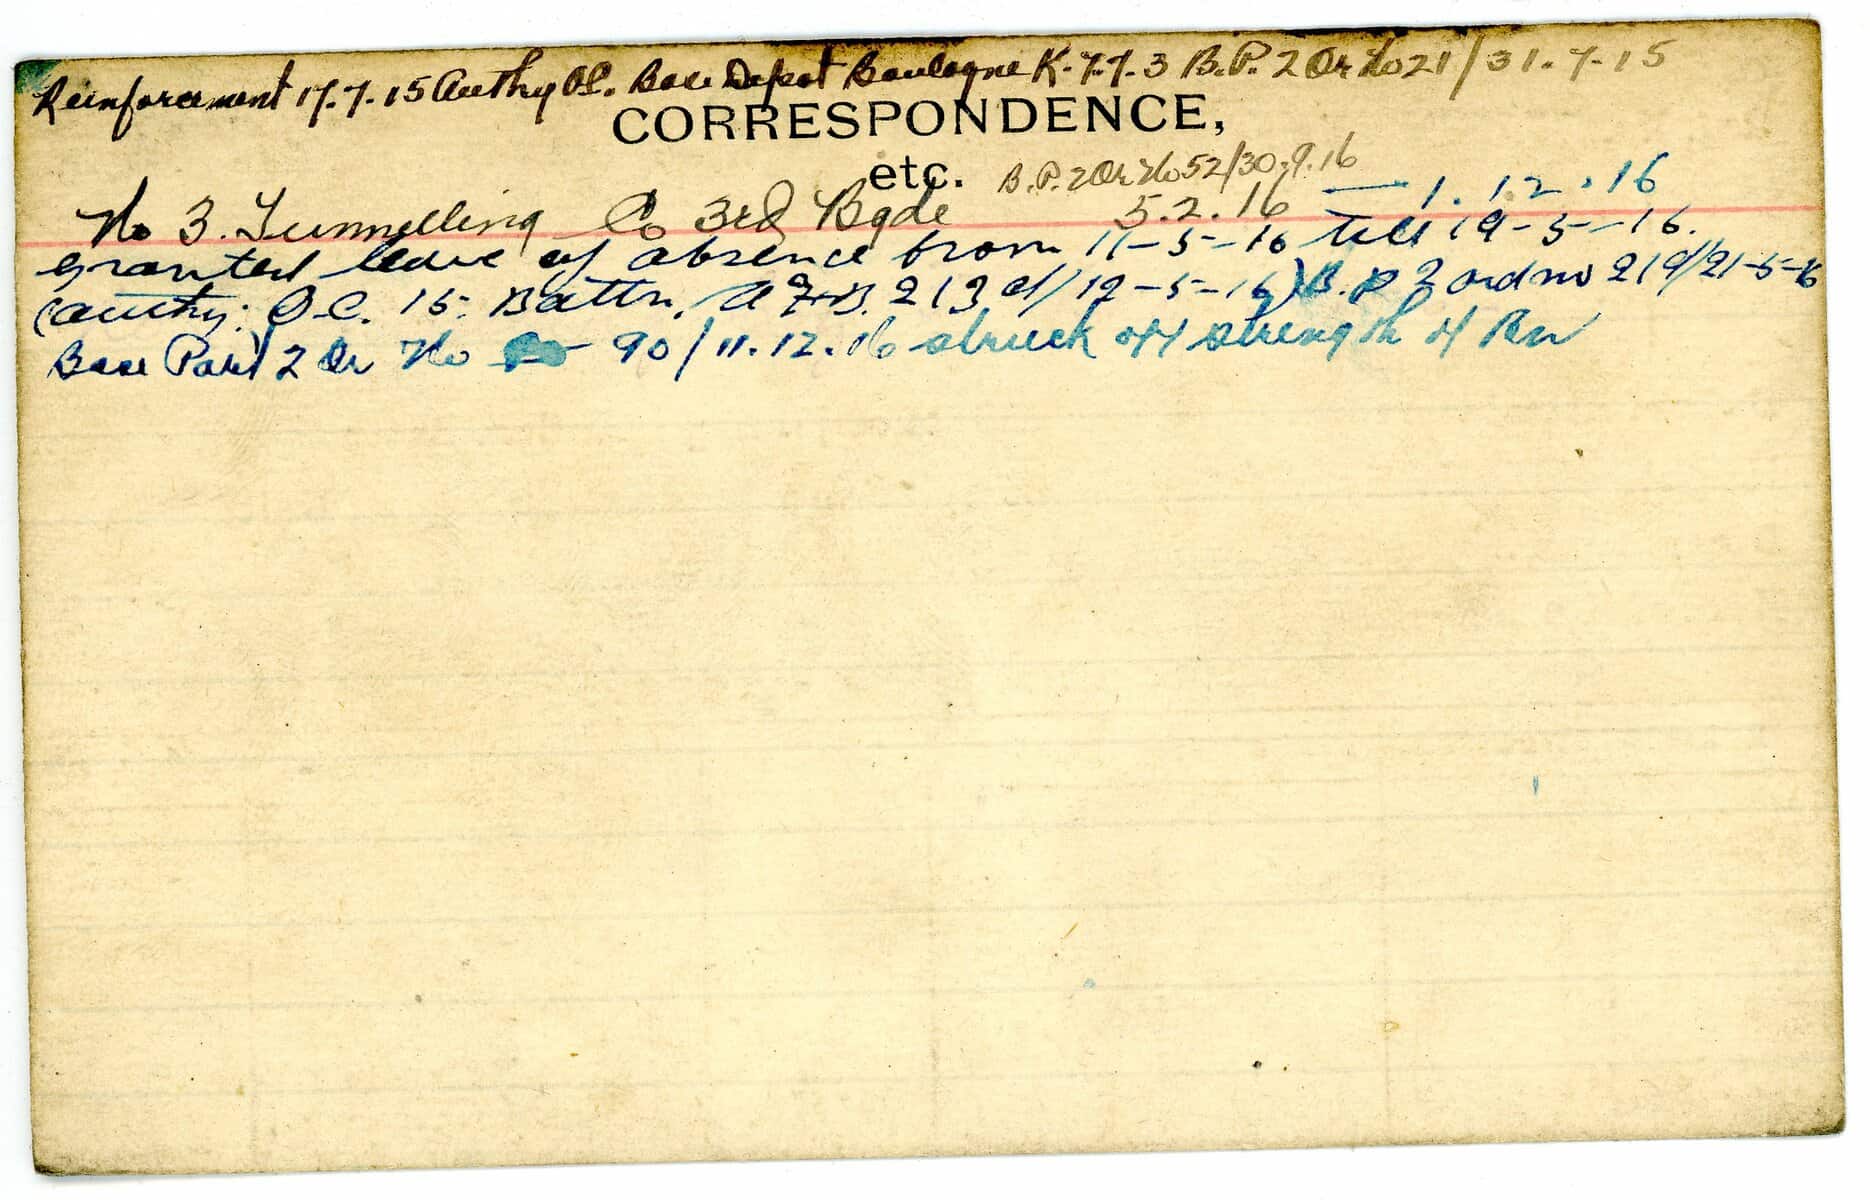 Reinforcement 17.7.15 Authy OC. Base Depot Boulogne K-7.7.3 B.P. 2 Or No 21/31.7.15
CORRESPONDENCE,
etc. B.P. 2 Or No 52/30.9.16
No 3. Tunnelling Co 3rd Bgde 5.2.16 — 1.12.16
granted leave of absence from 11-5-16 till 19-5-16.
(authy: O.C. 15. Battn. 213 d/12-5-16) B.P 2 ord no 219/21-5-16
Base Part 2 Or No 90/11.12.16 struck off strength of Bn